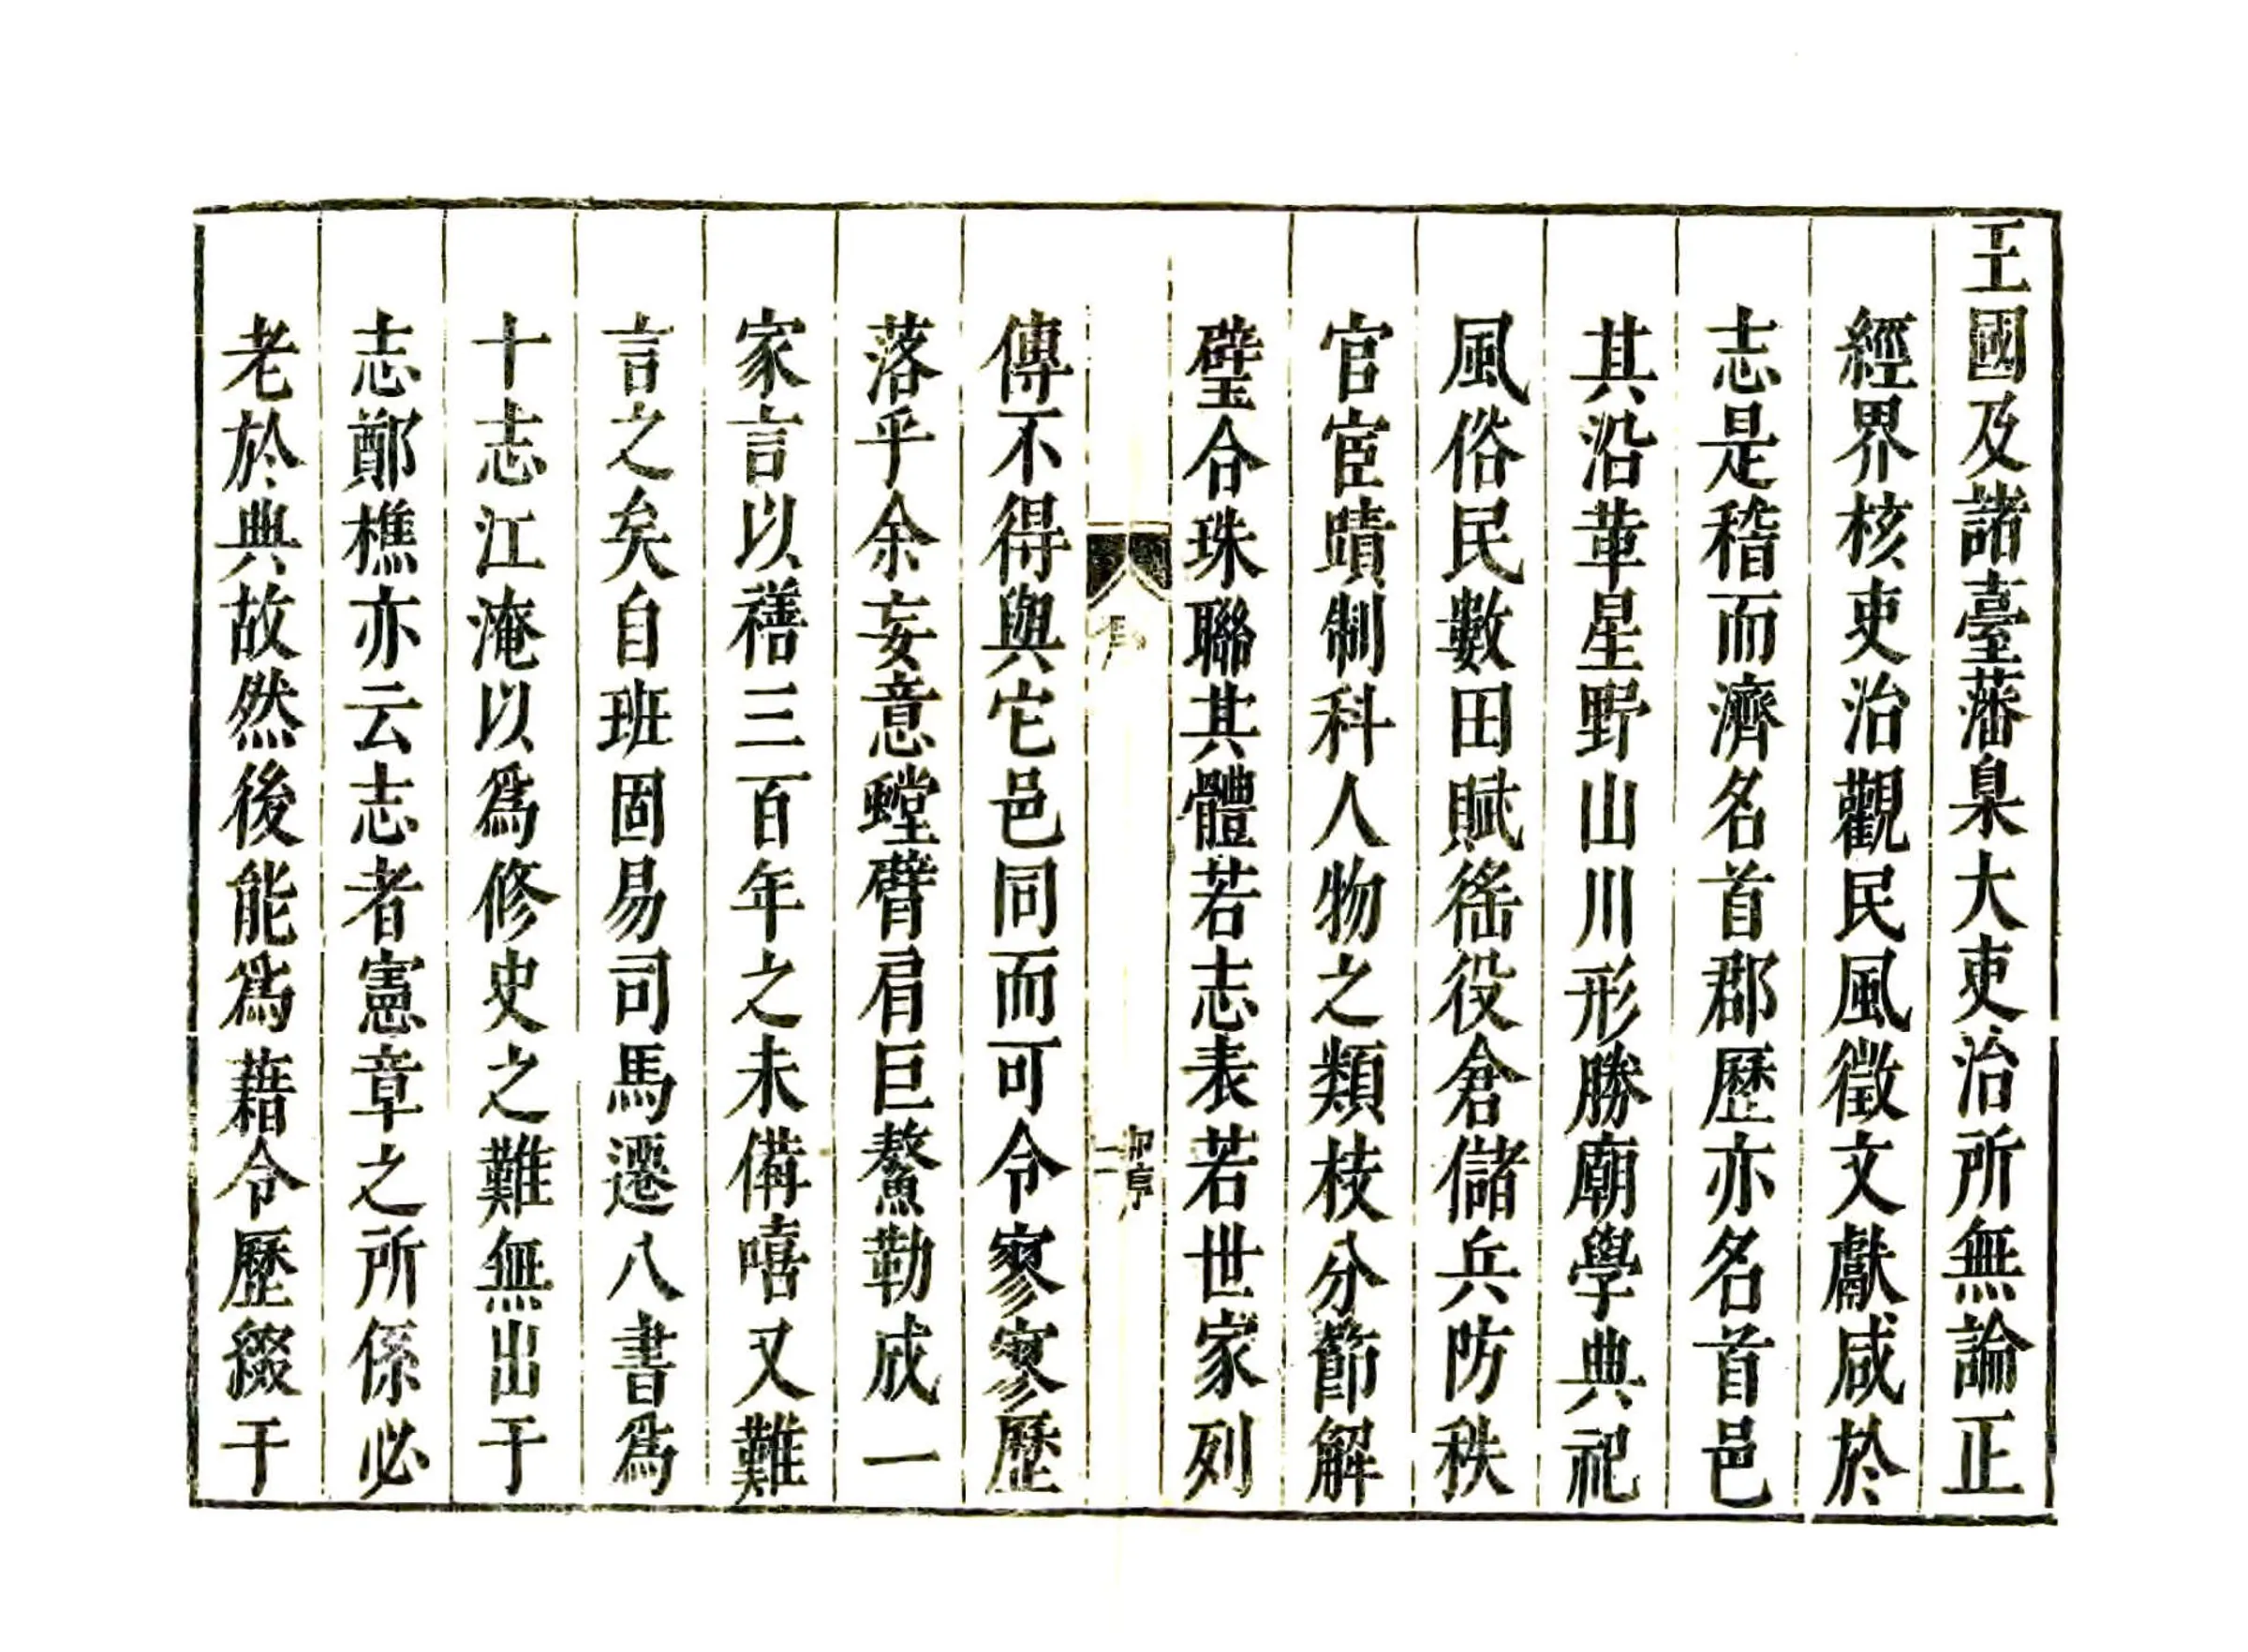 王國及諸臺藩臬大吏治所無論正
經界核吏治觀民風徵文獻咸於
志是稽而濟名首郡歷亦名首邑
其沿革星野山川形勝廟學典祀
風俗民數田賦徭役倉儲兵防秩
官宦蹟制科人物之類枝分節解
璧合珠聯其體若志表若世家列
傳不得與它邑同而可令寥寥歷
落乎余妄意螳臂肩巨鰲勒成一
家言以禧三百年之未備嘻又難
言之矣自班固易司馬遷八書為
十志江淹以為修史之難無出于
志鄭樵亦云志者憲章之所係必
老於典故然後能為藉令歷綴于